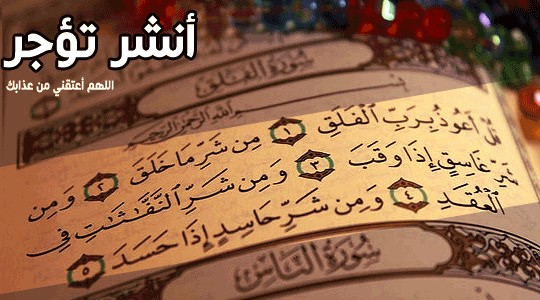 أنشر تؤجر
اللهم أعتقني من عذابك
سورة الفلق
بسم الله الرحمن الرحيم
قُلْ أَعُوذُ بِرَبِّ ٱلْفَلَقِ ١ مِن شَرِّ مَا خَلَقَ ٢ وَمِن
شَرِّ غَاسِقٍ إِذَا وَقَبَ ٣ وَمِن شَرِّ ٱلنَّفَّٰثَٰتِ فِى
ٱلْعُقَدِ ٤ وَمِن شَرِّ حَاسِدٍ إِذَا حَسَدَ ٥
سُورَةُ النَّاسِ